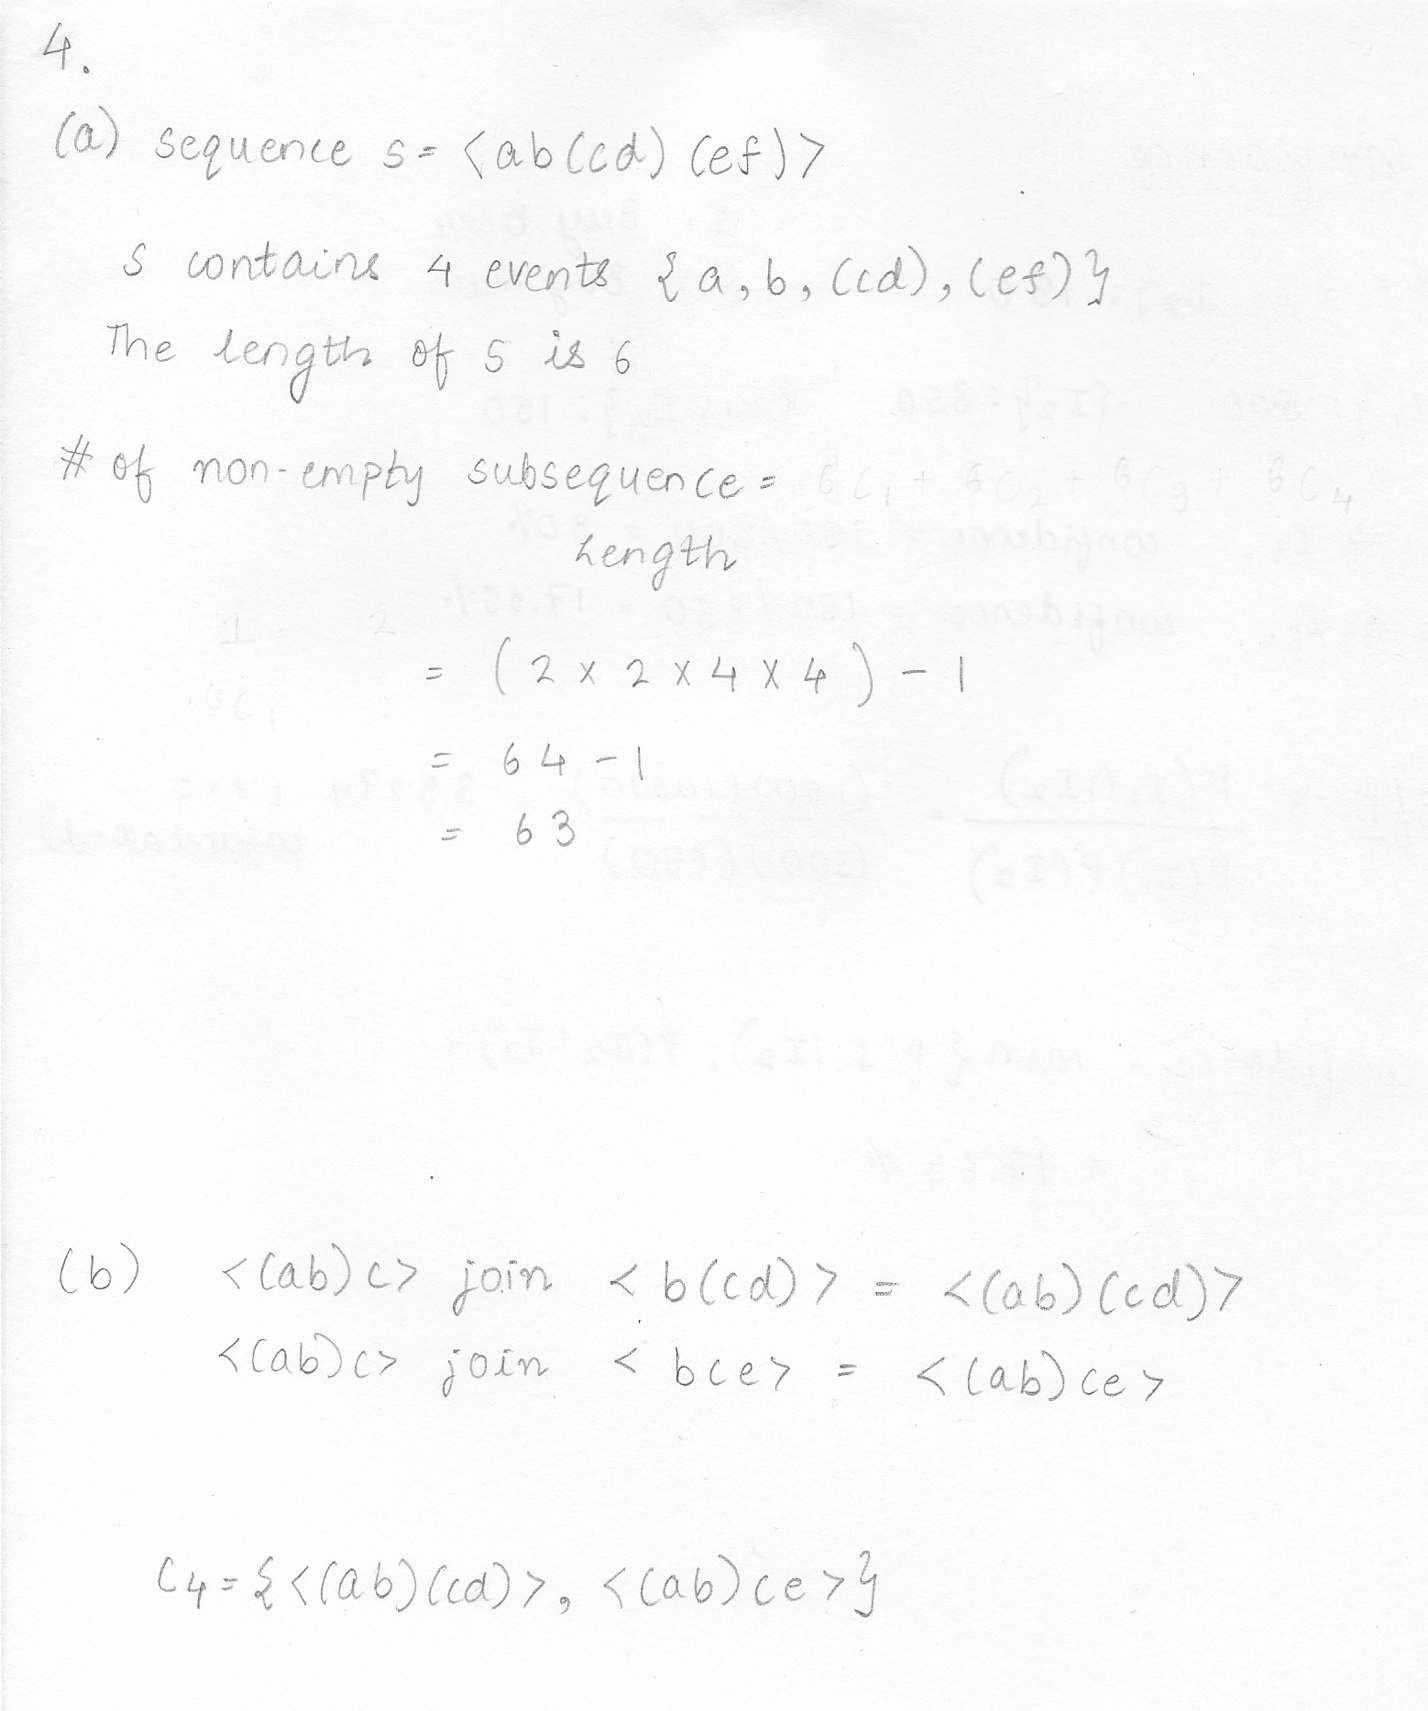 4.
(a) sequence s = <ab(cd)(ef)>
s contains 4 events {a, b, (cd), (ef)}
The length of s is 6
# of non-empty subsequence = 6C1 + 6C2 + 6C3 + 6C4
Length
= (2 x 2 x 4 x 4) - 1
= 64 - 1
= 63
(b) <(ab)c> join <b(cd)> = <(ab)(cd)>
<(ab)c> join <bce> = <(ab)ce>
C4 = {<(ab)(cd)>, <(ab)ce>}